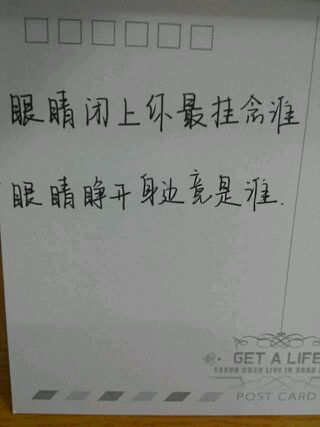 眼睛闭上你最挂念谁
眼睛睁开身边竟是谁.
GET A LIFE
EASON CHAN LIVE IN HONG
POST CARD